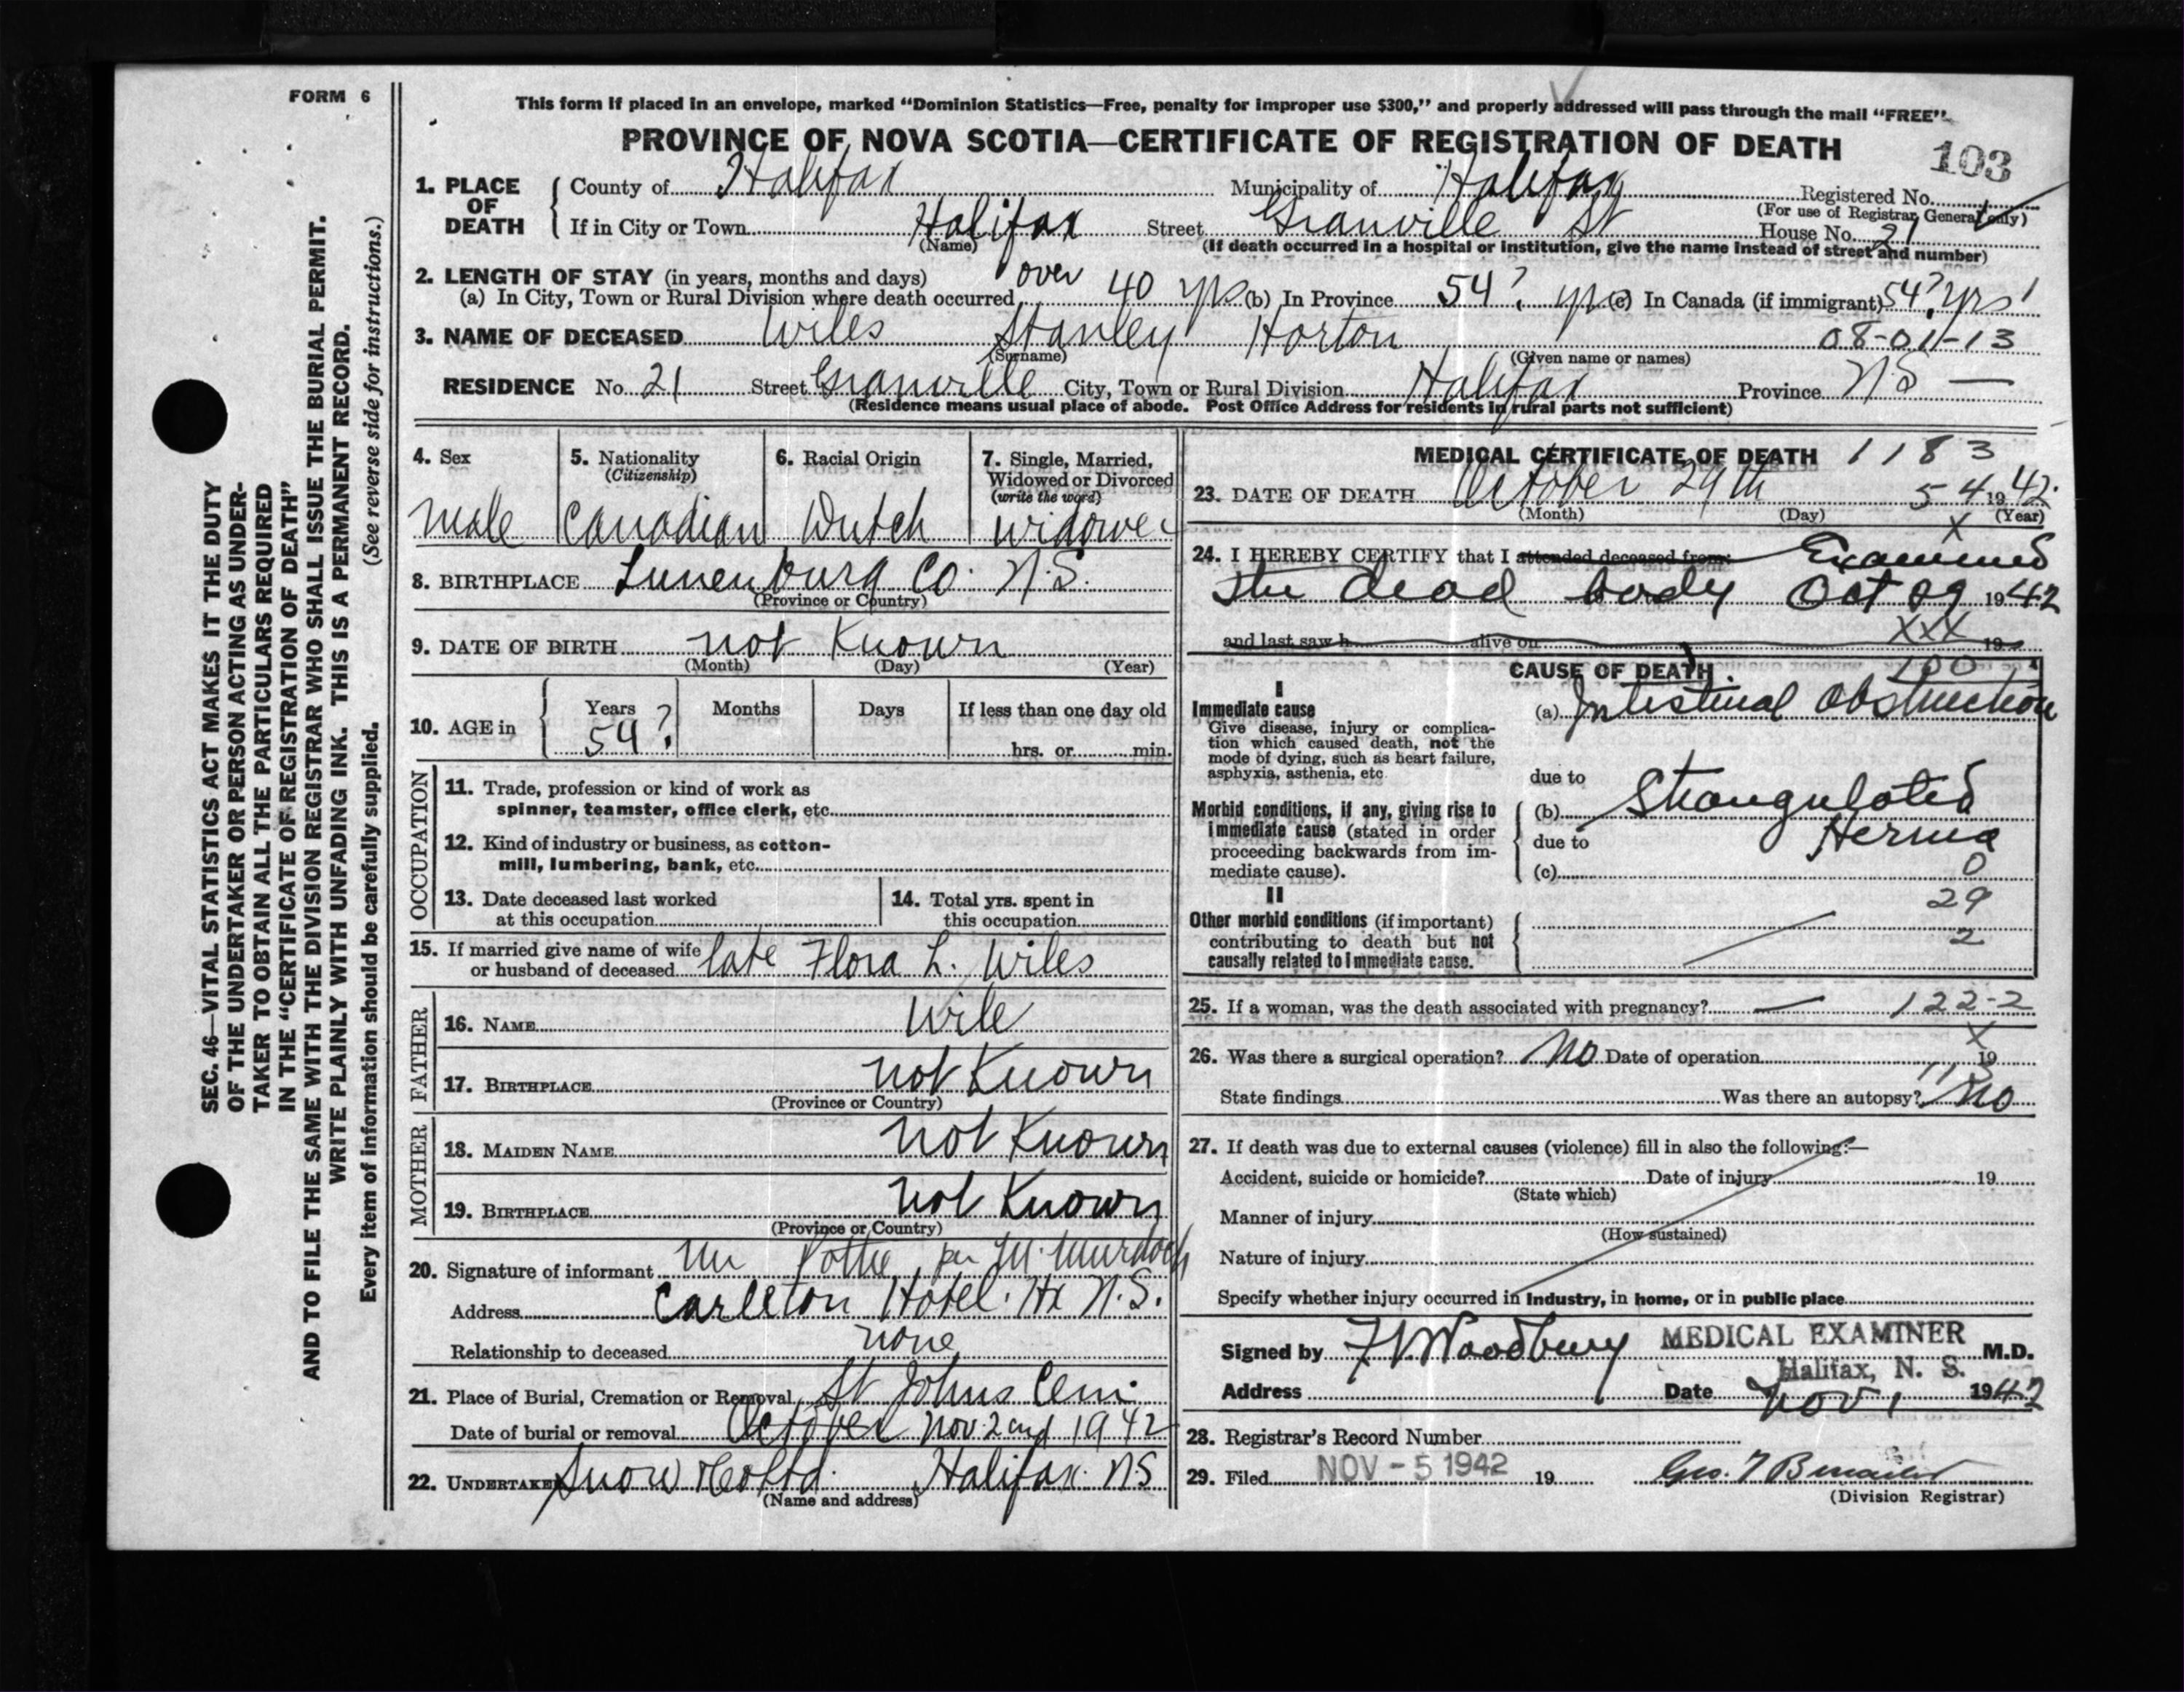 FORM 6
This form if placed in an envelope, marked "Dominion Statistics—Free, penalty for improper use $300," and properly addressed will pass through the mail "FREE".
PROVINCE OF NOVA SCOTIA—CERTIFICATE OF REGISTRATION OF DEATH
103
1. PLACE OF DEATH
County of Halifax Municipality of Halifax Registered No.
(For use of Registrar General only)
If in City or Town Halifax Street Granville St House No. 21
(Name) (If death occurred in a hospital or institution, give the name instead of street and number)
2. LENGTH OF STAY (in years, months and days)
(a) In City, Town or Rural Division where death occurred over 40 yrs (b) In Province 54? yrs (c) In Canada (if immigrant) 54? yrs
3. NAME OF DECEASED Wiles Stanley Horton 08-011-13
(Surname) (Given name or names)
RESIDENCE No. 21 Street Granville City, Town or Rural Division Halifax Province N.S —
(Residence means usual place of abode. Post Office Address for residents in rural parts not sufficient)
4. Sex
male
5. Nationality
(Citizenship)
Canadian
6. Racial Origin
Dutch
7. Single, Married, Widowed or Divorced
(write the word)
widower
8. BIRTHPLACE Lunenburg Co. N.S.
(Province or Country)
9. DATE OF BIRTH not Known
(Month) (Day) (Year)
10. AGE in
Years Months Days If less than one day old
54? hrs. or min.
OCCUPATION
11. Trade, profession or kind of work as
spinner, teamster, office clerk, etc.
12. Kind of industry or business, as cotton-
mill, lumbering, bank, etc.
13. Date deceased last worked
at this occupation
14. Total yrs. spent in
this occupation
15. If married give name of wife
or husband of deceased late Flora L. Wiles
FATHER
16. NAME Wile
17. BIRTHPLACE not Known
(Province or Country)
MOTHER
18. MAIDEN NAME not Known
19. BIRTHPLACE not Known
(Province or Country)
20. Signature of informant Mr Pottie per M. Murdoch
Address Carleton Hotel. Hx N.S.
Relationship to deceased none
21. Place of Burial, Cremation or Removal St Johns Cem.
Date of burial or removal October Nov. 2nd 1942
22. UNDERTAKER Snow & Co Ltd. Halifax. N.S
(Name and address)
MEDICAL CERTIFICATE OF DEATH 1183
23. DATE OF DEATH October 29th 54 1942.
(Month) (Day) (Year)
x
24. I HEREBY CERTIFY that I attended deceased from: Examined
the dead body Oct 29 1942
and last saw h alive on xxx 19
CAUSE OF DEATH
100
I
Immediate cause
Give disease, injury or complica-
tion which caused death, not the
mode of dying, such as heart failure,
asphyxia, asthenia, etc
(a) Intestinal Obstruction
due to
Morbid conditions, if any, giving rise to
immediate cause (stated in order
proceeding backwards from im-
mediate cause).
(b) Strangulated
due to Hernia
(c) 0
29
II
Other morbid conditions (if important)
contributing to death but not
causally related to immediate cause.
2
25. If a woman, was the death associated with pregnancy? — 122-2
x
26. Was there a surgical operation? No Date of operation 19
113
State findings Was there an autopsy? No
27. If death was due to external causes (violence) fill in also the following:—
Accident, suicide or homicide? Date of injury 19
(State which)
Manner of injury
(How sustained)
Nature of injury
Specify whether injury occurred in industry, in home, or in public place
Signed by F V Woodbury MEDICAL EXAMINER M.D.
Halifax, N. S.
Address Date Nov 1 1942
28. Registrar's Record Number
29. Filed NOV - 5 1942 19
(Division Registrar)
SEC. 46—VITAL STATISTICS ACT MAKES IT THE DUTY
OF THE UNDERTAKER OR PERSON ACTING AS UNDER-
TAKER TO OBTAIN ALL THE PARTICULARS REQUIRED
IN THE "CERTIFICATE OF REGISTRATION OF DEATH"
AND TO FILE THE SAME WITH THE DIVISION REGISTRAR WHO SHALL ISSUE THE BURIAL PERMIT.
WRITE PLAINLY WITH UNFADING INK. THIS IS A PERMANENT RECORD.
Every item of information should be carefully supplied. (See reverse side for instructions.)